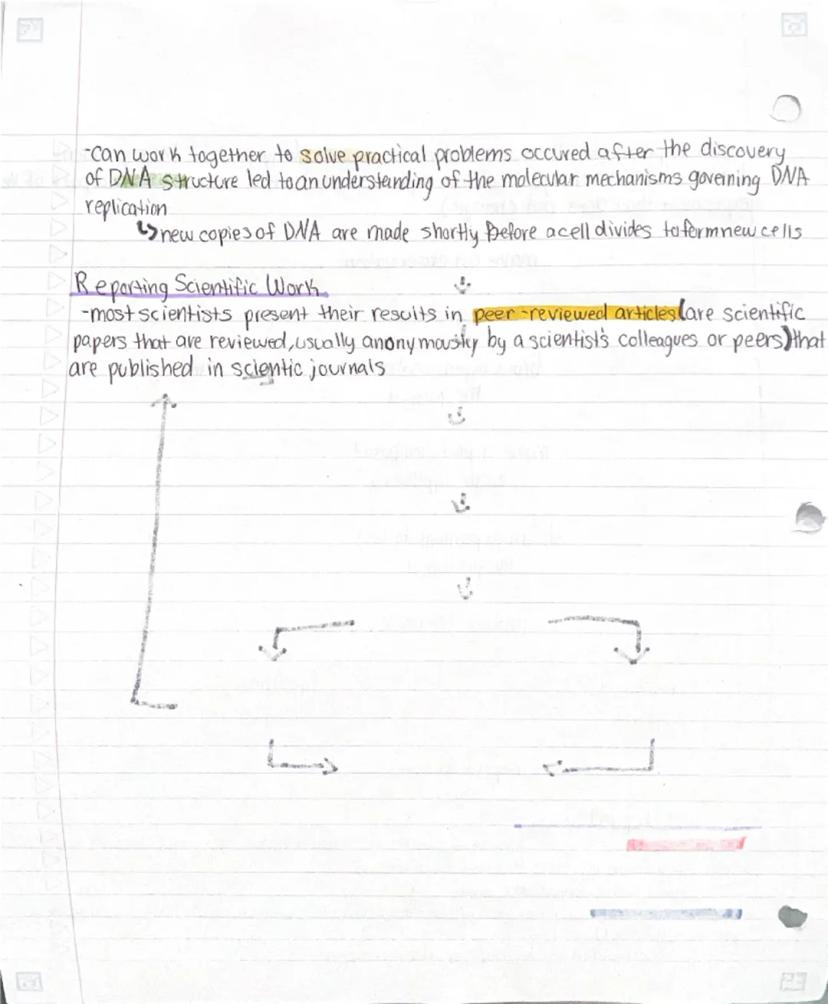 -can work together to solve practical problems occured after the discovery
of DNA structure led to an understanding of the molecular mechanisms governing DNA
replication
↳new copies of DNA are made shortly before a cell divides to form new cells
Reporting Scientific Work
-most scientists present their results in peer-reviewed articles (are scientific
papers that are reviewed, usually anonymously by a scientist's colleagues or peers) that
are published in scientic journals